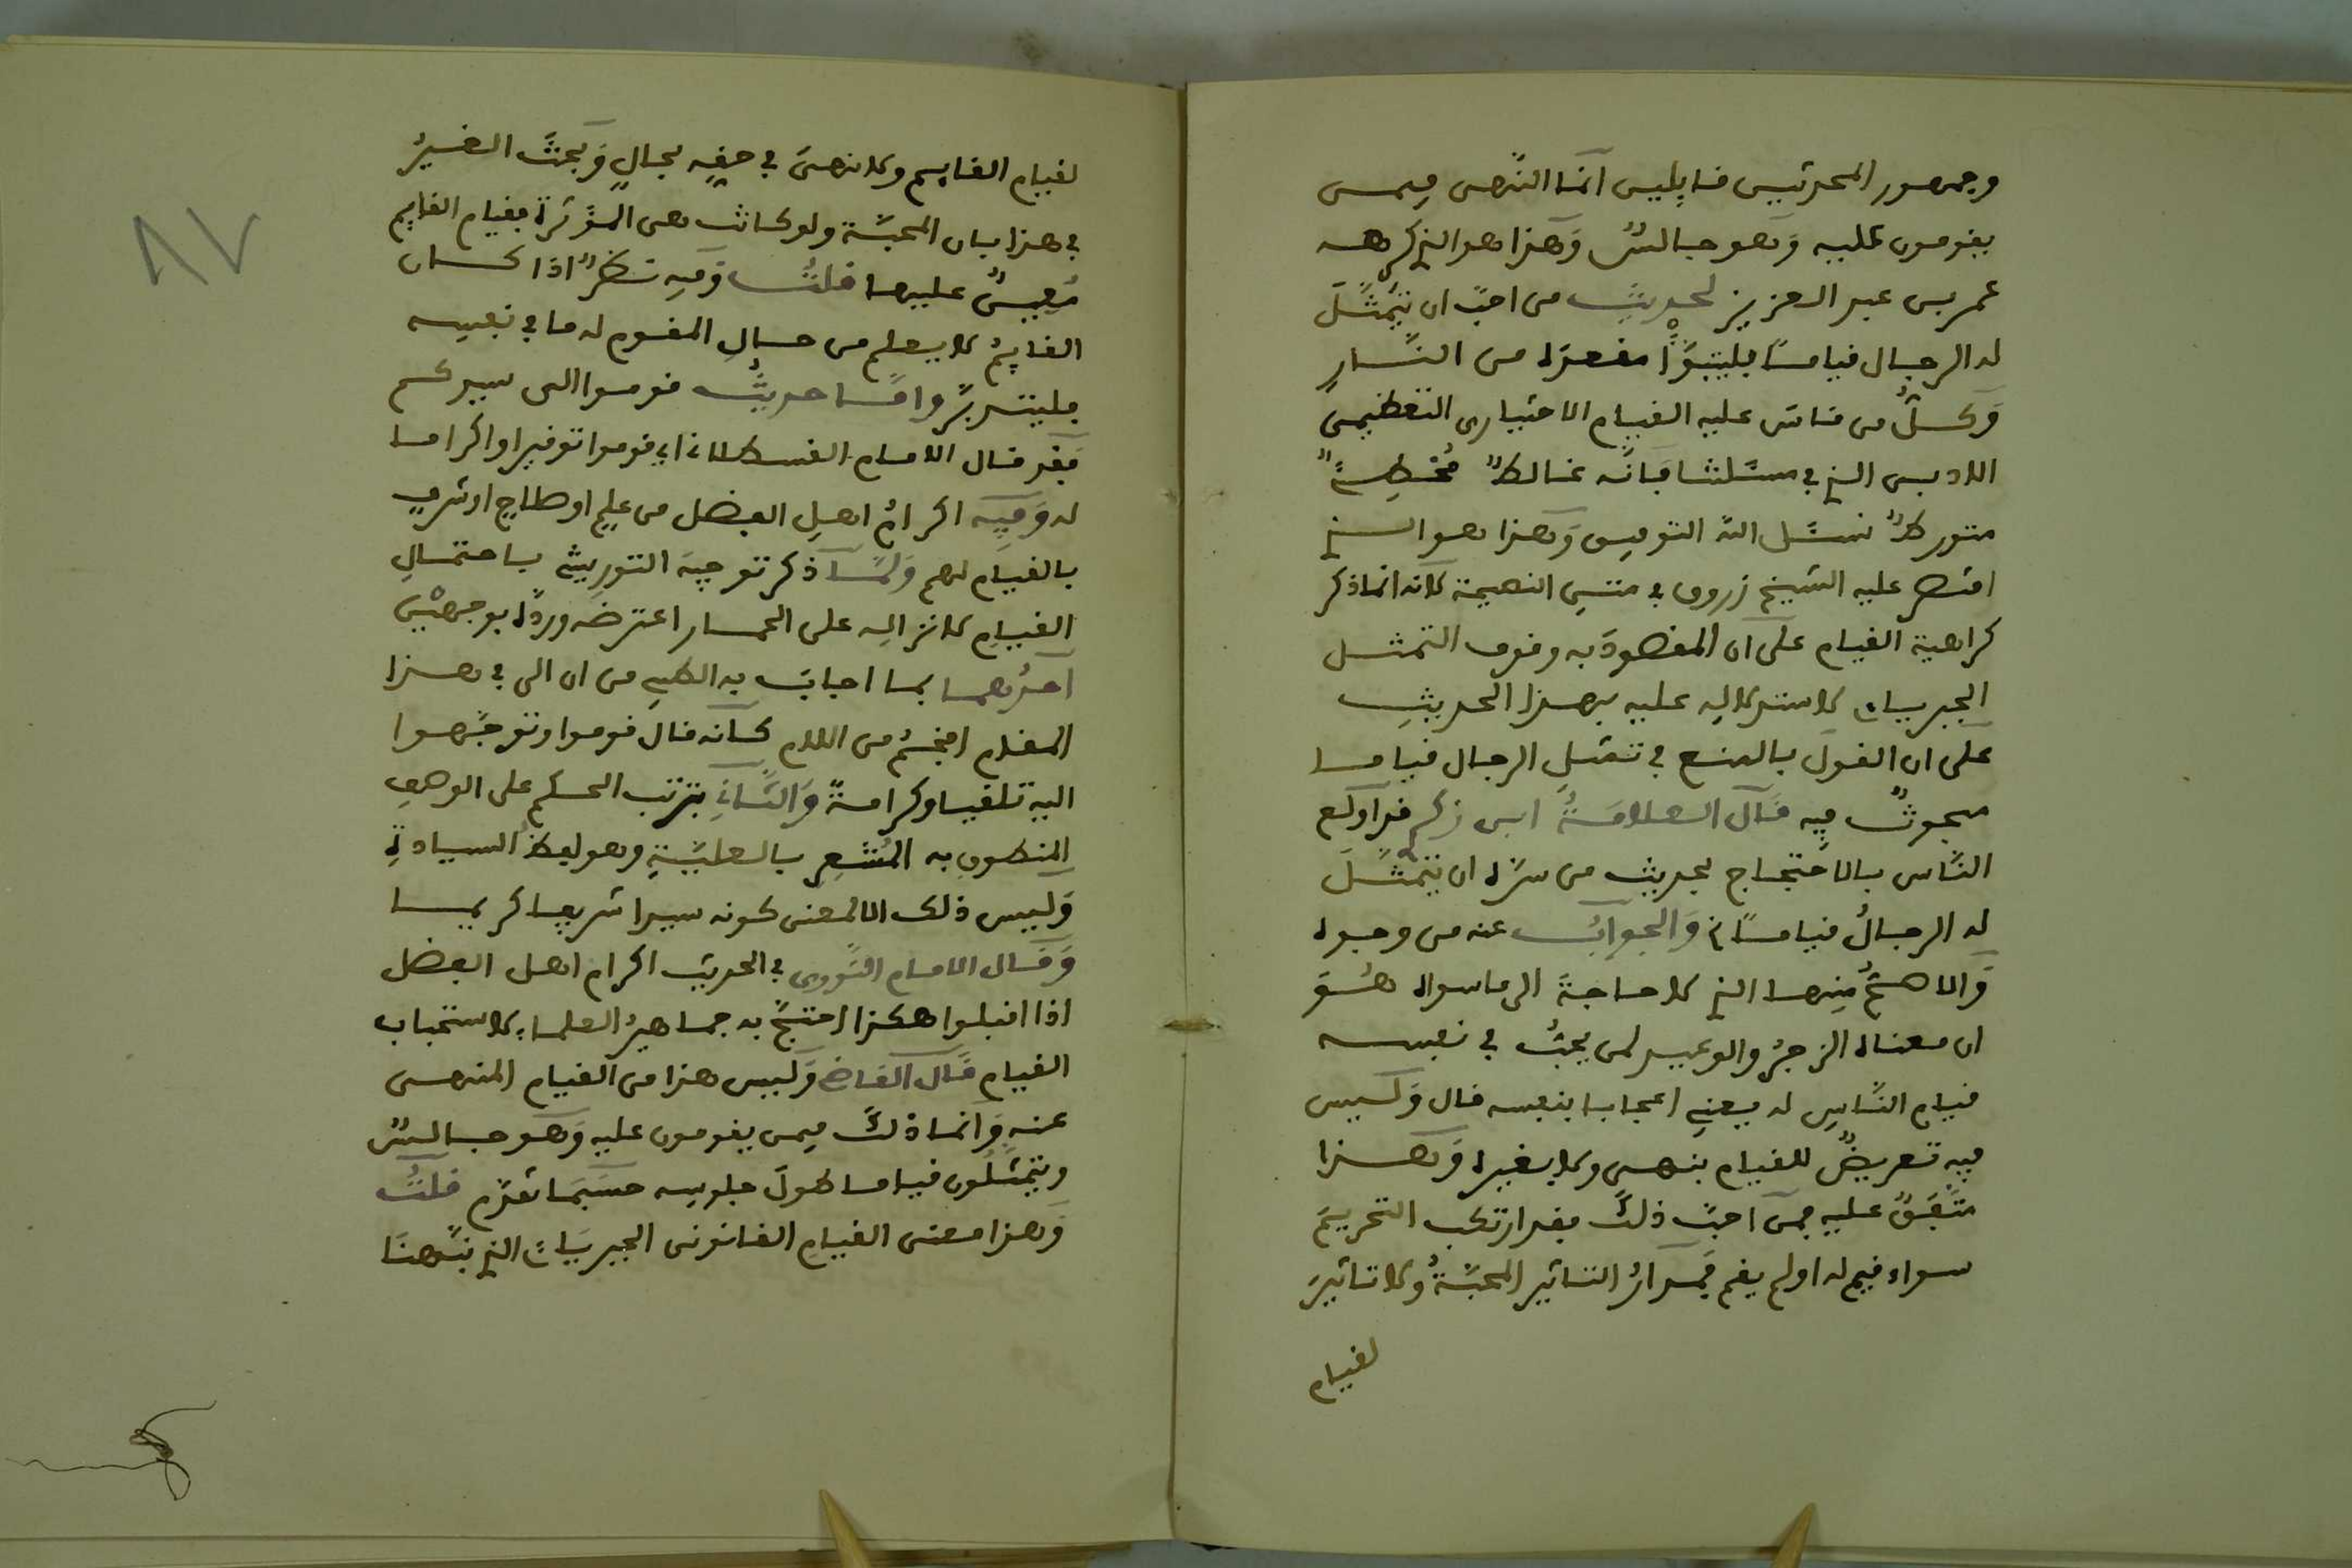 وجمهور المحدثين قايلين انما النهي فيمن
يقومون عليه وهو جالس وهذا هو الذي كرهه
عمر بن عبد العزيز لحديث من احب ان يتمثل
له الرجال قياما فليتبوا مقعده من النار
وكل من قاس عليه القيام الاختياري التعظيمي
الادبي الذي في مسئلتنا فانه غالط مخطئ
متورط نسئل الله التوفيق وهذا هو الذي
اقتصر عليه الشيخ زروق في متن النصيحة لانه انما ذكر
كراهية القيام على ان المقصود به وقوف التمثل
الجبرياني لاستدلاله عليه بهذا الحديث
على ان القول بالمنع في تمثل الرجال قياما
مبحوث فيه قال العلامة ابن زكري قد اولع
الناس بالاحتجاج بحديث من سره ان يتمثل
له الرجال قياما والجواب عنه من وجوه
والاصح منها الذي لا حاجة الى ما سواه هو
ان معناه الزجر والوعيد لمن يحب في نفسه
قيام الناس له يعني اعجابا بنفسه قال وليس
فيه تعريض للقيام بنهي ولا بغيره وهذا
متفق عليه فمن احب ذلك فقد ارتكب التحريم
سواء قيم له او لم يقم فمدار التاثير المحبة ولا تاثير
لقيام
لقيام القايم ولا نهي في حقه بحال وبحث الغير
في هذا بان المحبة ولو كانت هي المؤثرة فقيام القايم
معين عليها قلت وفيه نظر اذا كان
القايم لا يعلم من حال المقوم له ما في نفسه
فليتدبر واما حديث قوموا الى سيدكم
فقد قال الامام القسطلاني اي قوموا توقيرا واكراما
له وفيه اكرام اهل الفضل من علم او صلاح او شرف
بالقيام لهم ولما ذكر توجيه التوربشتي باحتمال
القيام لانزاله على الحمار اعترضه ورده بوجهين
احدهما بما اجاب به الطيبي من ان الى في هذا
المقام افخم من اللام كانه قال قوموا وتوجهوا
اليه تلقيا وكرامة والثاني بترتب الحكم على الوصف
المنطوق به المشعر بالعلية وهو لفظ السيادة
وليس ذلك الا لمعنى كونه سيدا شريفا كريما
وقال الامام النووي في الحديث اكرام اهل الفضل
اذا اقبلوا هكذا احتج به جماهير العلماء لاستحباب
القيام قال القاضي وليس هذا من القيام المنهي
عنه وانما ذلك فيمن يقومون عليه وهو جالس
ويتمثلون قياما طول جلوسه حسبما تقدم قلت
وهذا معنى القيام القانوني الجبرياني الذي نبهنا
٨٧